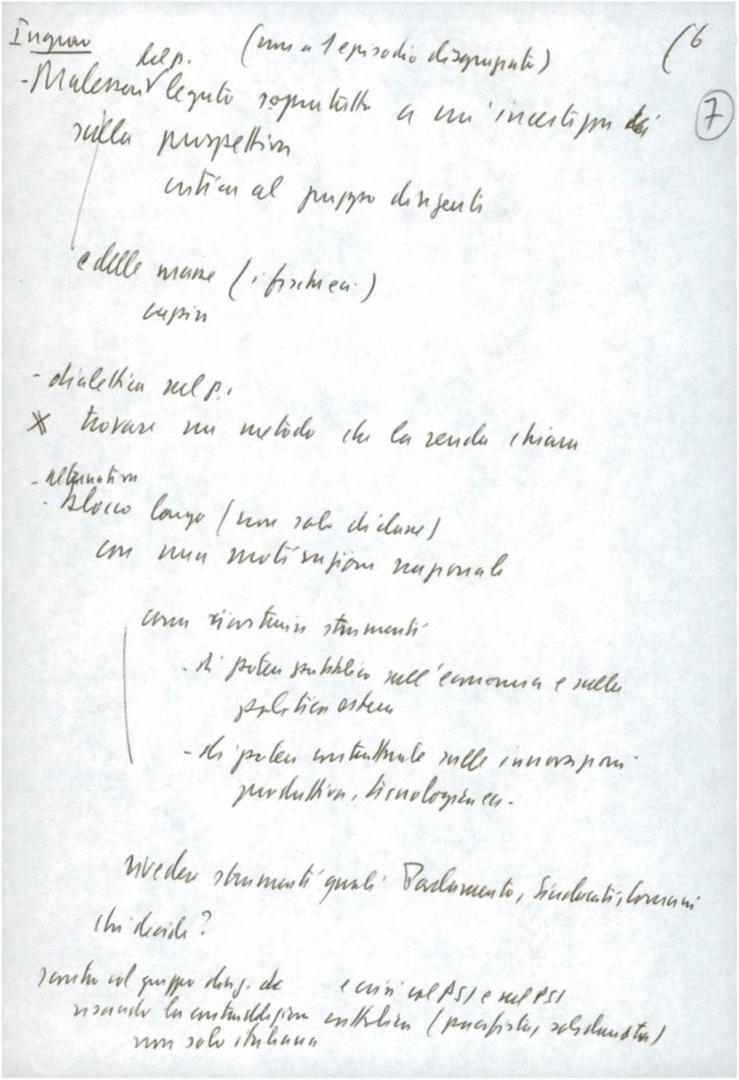 Ingrao (non a 1 episodio disgregato) (6
del p.
- Malessere legato soprattutto a un'incertezza di 7
sulla prospettiva
critica al gruppo dirigente
e delle masse (i fischi ecc.)
- dialettica nel p.
* trovare un metodo che la renda chiara
- alternativa
- Blocco largo (non solo di classe)
con una motivazione nazionale
come ricostruire strumenti
- di potere pubblico sull'economia e sulla
politica estera
- di potere contrattuale sulle innovazioni
produttive, tecnologiche ecc.
rivedere strumenti quali Parlamento, Sindacati, Comuni
chi decide?
scontro col gruppo dirig. dc e crisi col PSI e nel PSI
usando la contraddizione cattolica (pacifista, solidarista)
non solo italiana